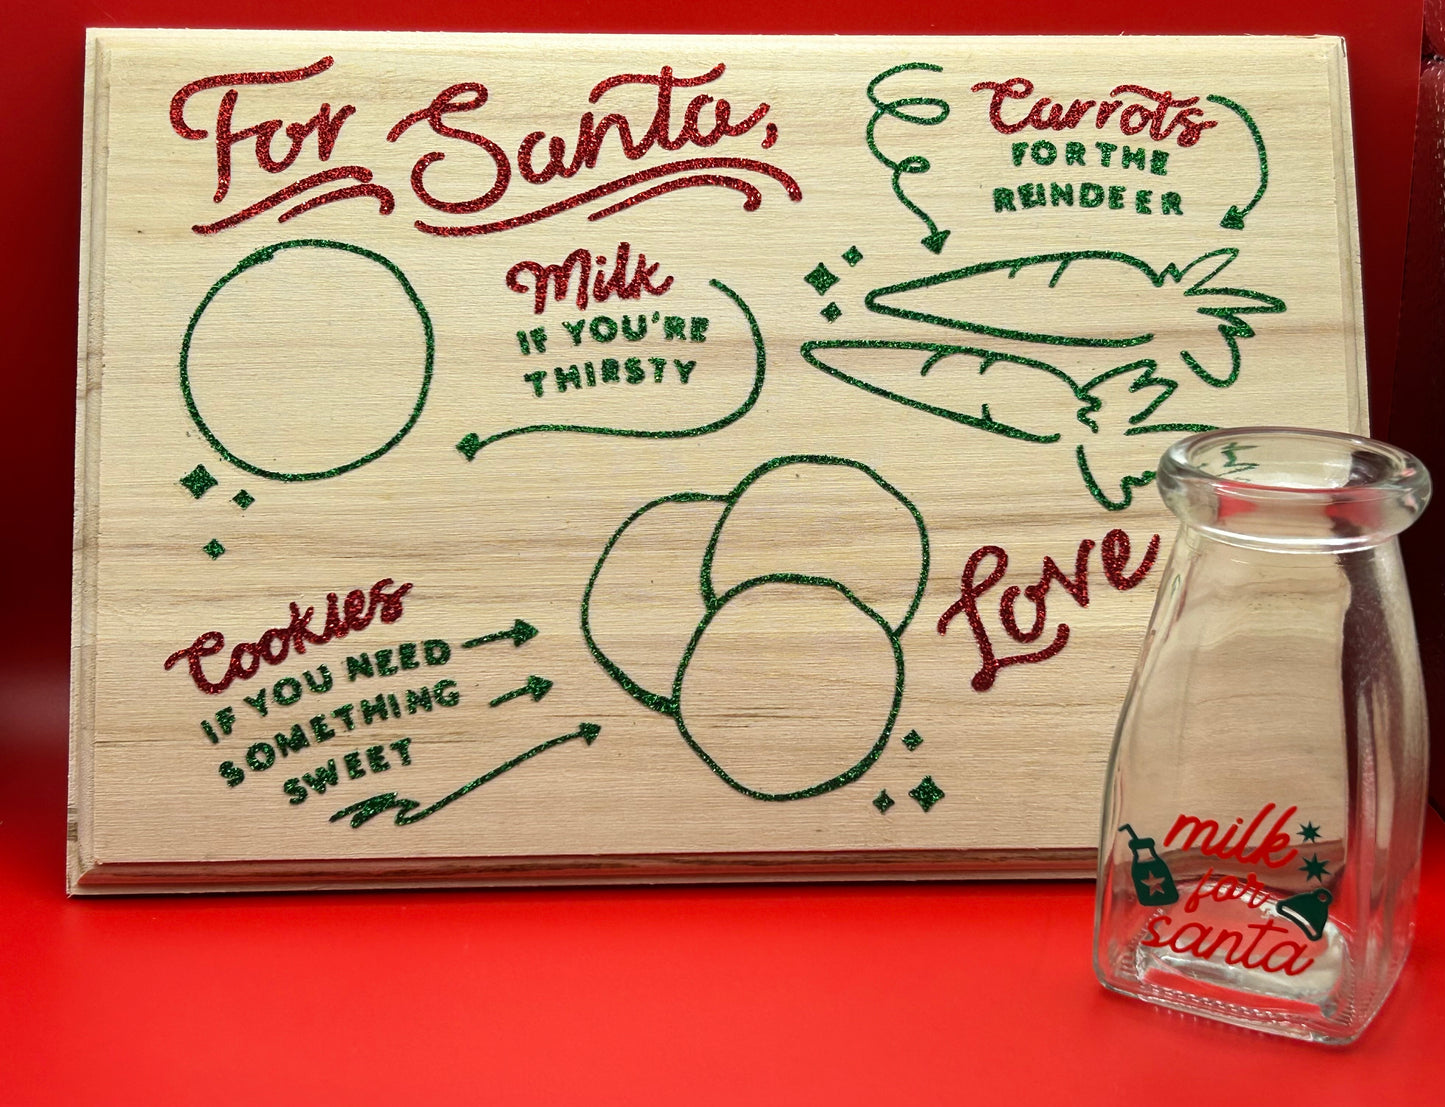 For Santa,
Carrots
FOR THE
REINDEER
Milk
IF YOU'RE
THIRSTY
Cookies
IF YOU NEED
SOMETHING
SWEET
Love
milk
for
santa